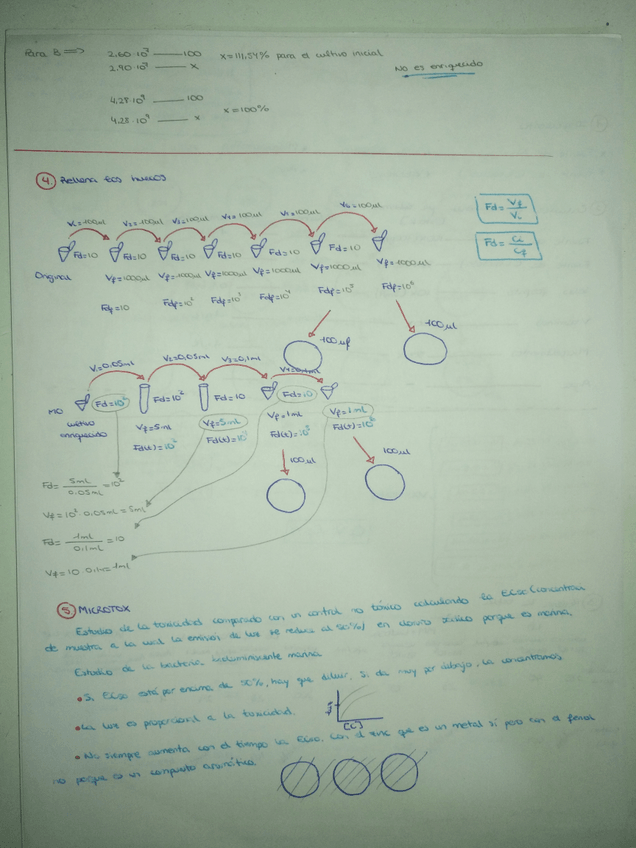 Para B ⟹ 2.60·10⁹ —— 100 x = 111,54% para el cultivo inicial
2.90·10⁹ —— x
No es enriquecido
4,28·10⁹ —— 100
x = 100%
4,28·10⁹ —— x
4. Rellena los huecos
Fd = Vf / Vi
Fd = Ci / Cf
Vi=100µl V2=100µl V3=100µl V4=100µl V5=100µl V6=100µl
Fd=10 Fd=10 Fd=10 Fd=10 Fd=10 Fd=10
Original Vf=1000µl Vf=1000µl Vf=1000µl Vf=1000µl Vf=1000µl Vf=1000µl
Fdf=10
100µl
100µl
V1=0.05ml V2=0,05ml V3=0,1ml V4=0.1ml
MO Fd=10² Fd=10² Fd=10 Fd=10
cultivo enriquecido Vf=5ml Vf=5ml Vf=1ml Vf=1ml
100µl
100µl
Fd = 5ml / 0.05ml = 10²
Vf = 10² · 0.05ml = 5ml
Fd = 1ml / 0.1ml = 10
Vf = 10 · 0.1ml = 1ml
5. MICROTOX
Estudio de la toxicidad comparado con un control no tóxico calculando la EC50 (concentra
de muestra a la cual la emisión de luz se reduce al 50%) en cloruro sódico porque es marina.
Estudio de la bacteria marina
• Si EC50 está por encima de 50%, hay que diluir, si da muy por debajo, la concentramos
• La luz es proporcional a la toxicidad.
[C]
• No siempre aumenta con el tiempo la EC50, con el zinc que es un metal sí pero con el fenol
no porque es un compuesto aromático